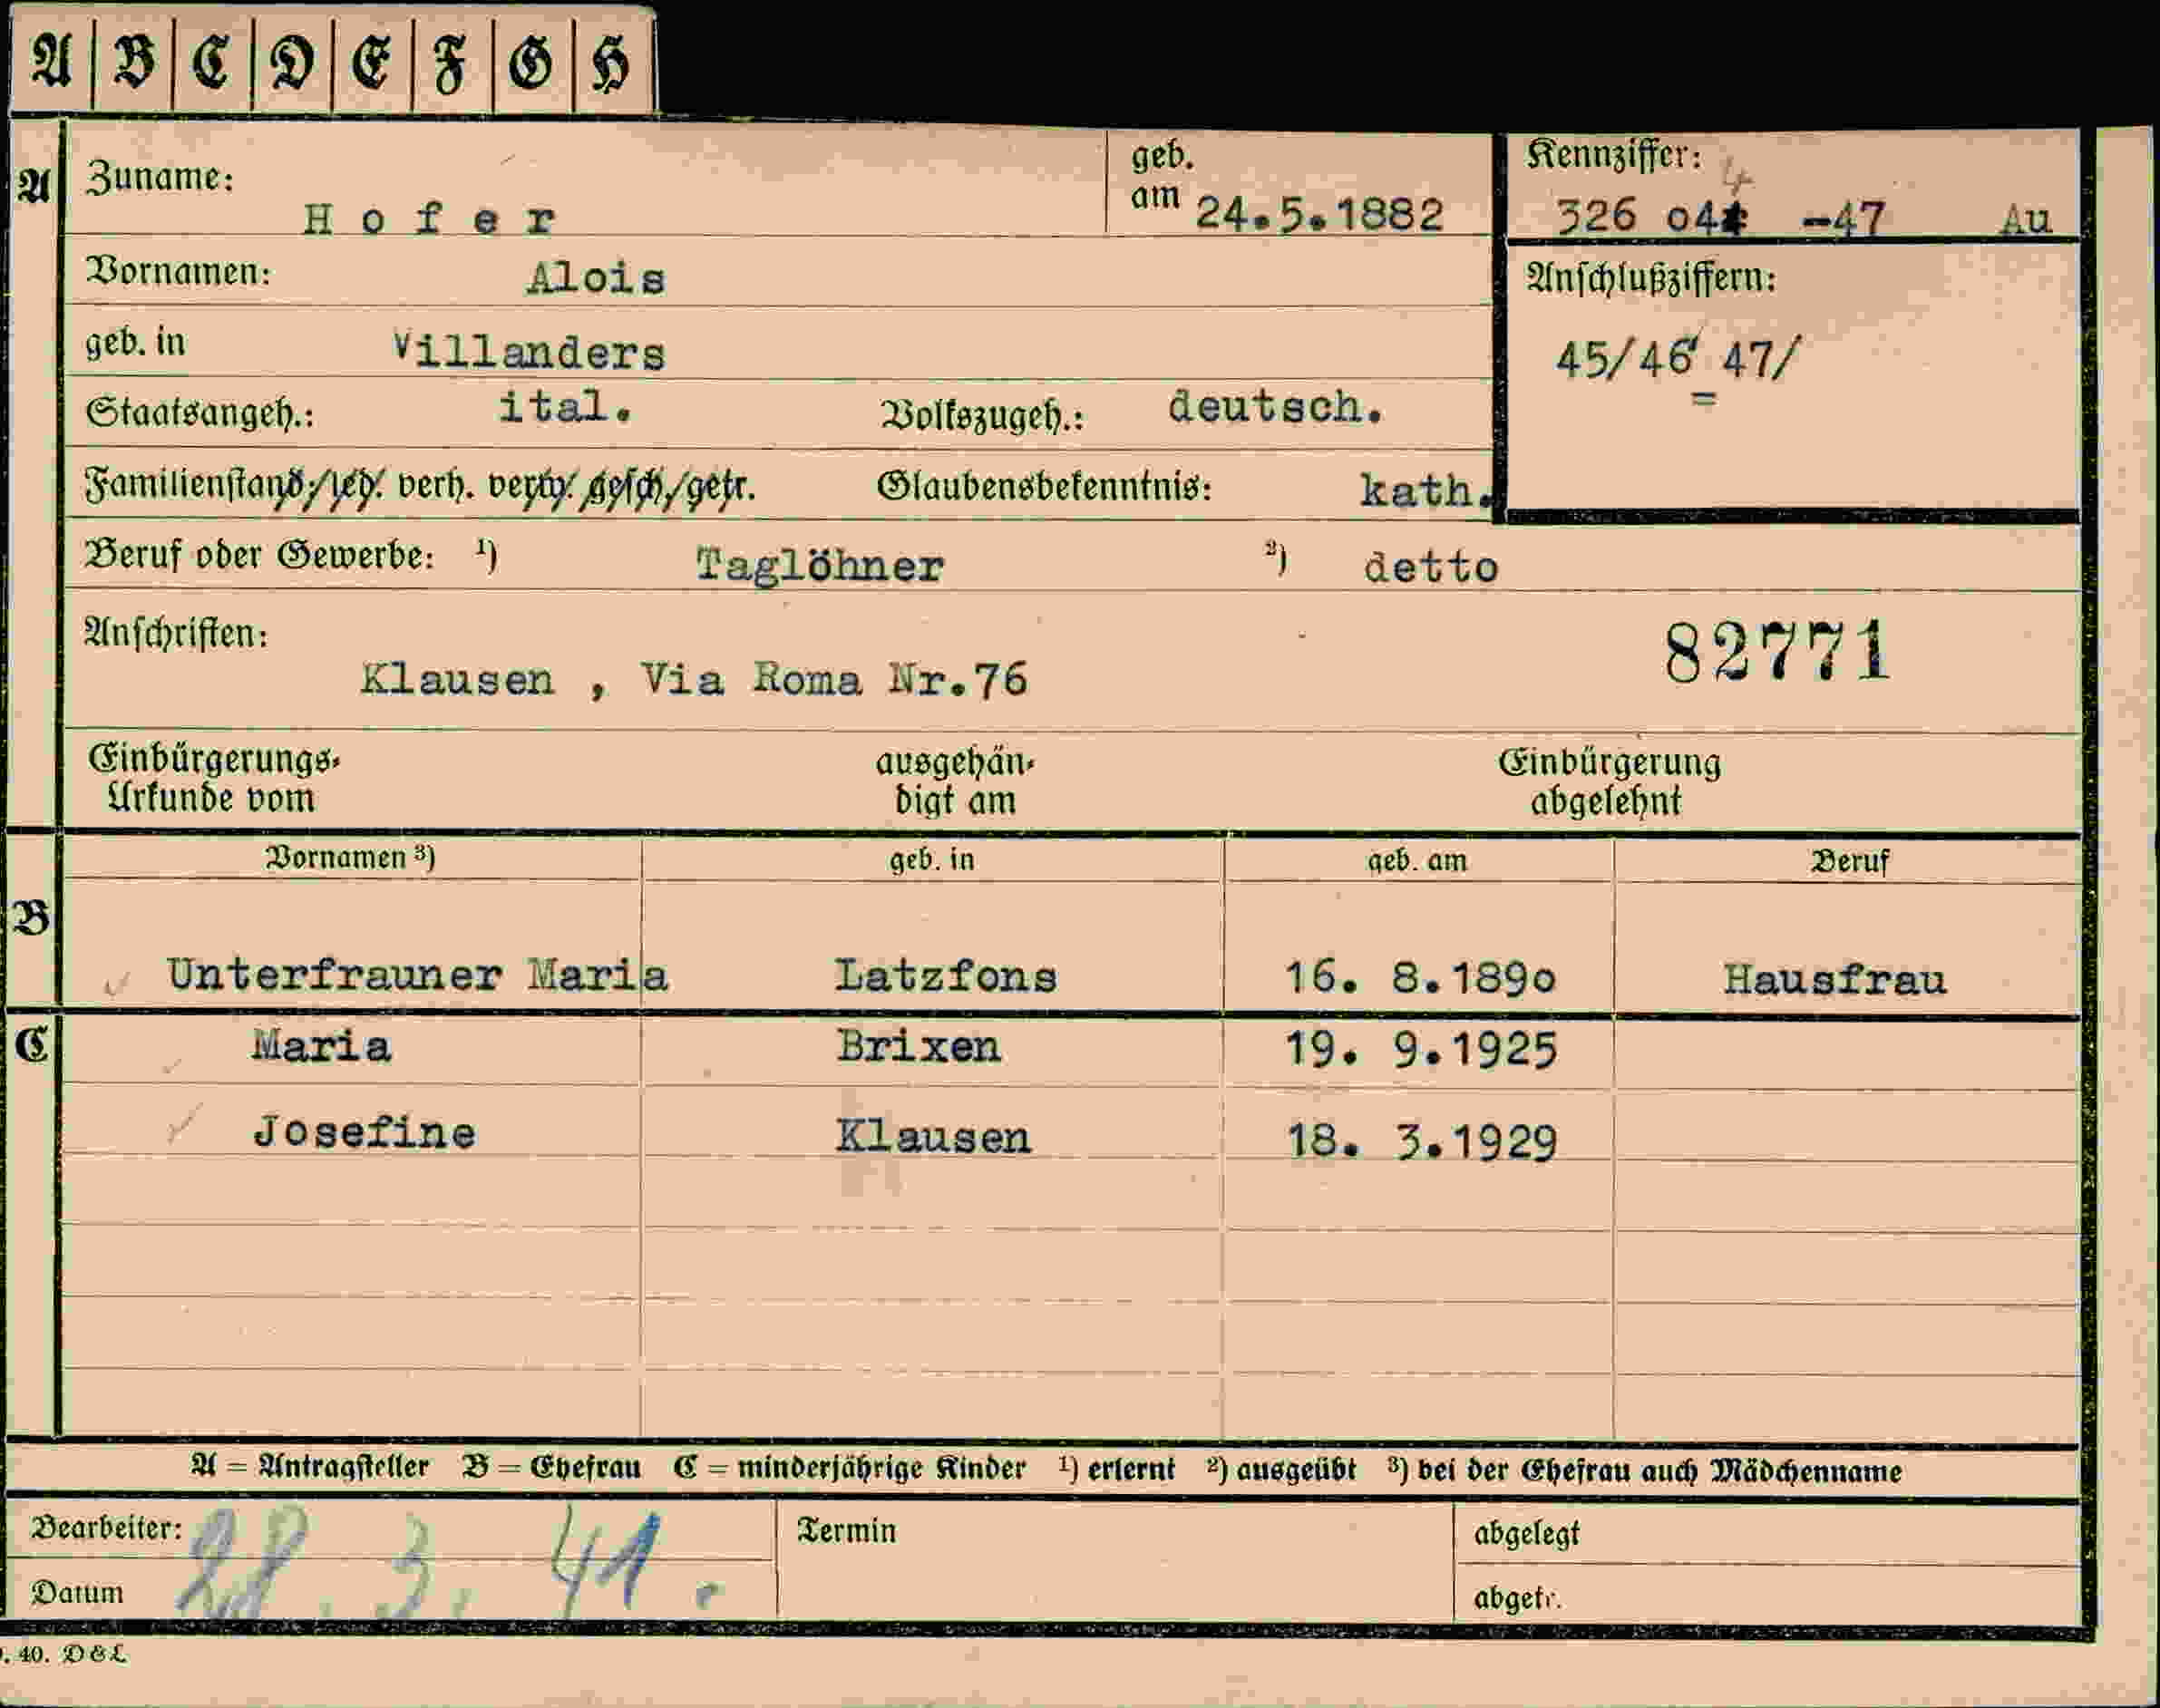 A B C D E F G H
A Zuname: H o f e r geb. am 24.5.1882
Kennziffer: 4
326 o44 -47 Au
Vornamen: Alois
Anschlußziffern:
geb. in Villanders
45/46 47/
=
Staatsangeh.: ital. Volkszugeh.: deutsch.
Familienstand: led. verh. verw. gesch. getr. Glaubensbekenntnis: kath.
Beruf oder Gewerbe: 1) Taglöhner 2) detto
Anschriften:
82771
Klausen , Via Roma Nr.76
Einbürgerungs- ausgehän- Einbürgerung
Urkunde vom digt am abgelehnt
Vornamen 3) geb. in geb. am Beruf
B
Unterfrauner Maria Latzfons 16. 8.189o Hausfrau
C Maria Brixen 19. 9.1925
Josefine Klausen 18. 3.1929
A = Antragsteller B = Ehefrau C = minderjährige Kinder 1) erlernt 2) ausgeübt 3) bei der Ehefrau auch Mädchenname
Bearbeiter: Termin abgelegt
Datum 28. 3. 41. abgetr.
. 40. D & L